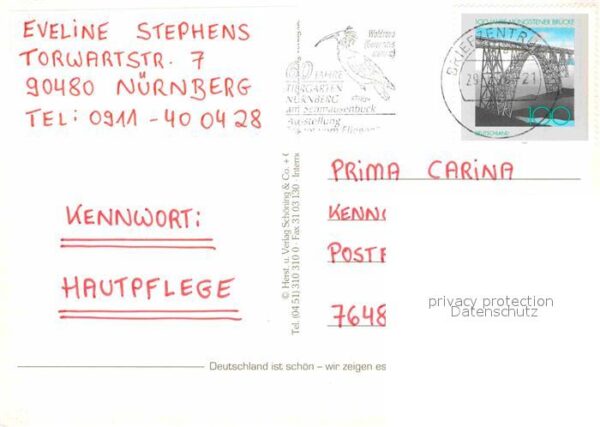 EVELINE STEPHENS
TORWARTSTR. 7
90480 NÜRNBERG
TEL: 0911 - 40 04 28
KENNWORT:
HAUTPFLEGE
Waldrapp
JAHRE
TIERGARTEN
NÜRNBERG
am Schmausenbuck
Ausstellung
100 JAHRE MÜNGSTENER BRÜCKE
BRIEFZENTRUM
21
100
DEUTSCHLAND
© Herst. u. Verlag Schöning & Co. + 
Tel. (04 51) 310 310 0 · Fax 31 03 130 · Interne
PRIMA CARINA
KENN
POSTF
7648
privacy protection
Datenschutz
Deutschland ist schön – wir zeigen es